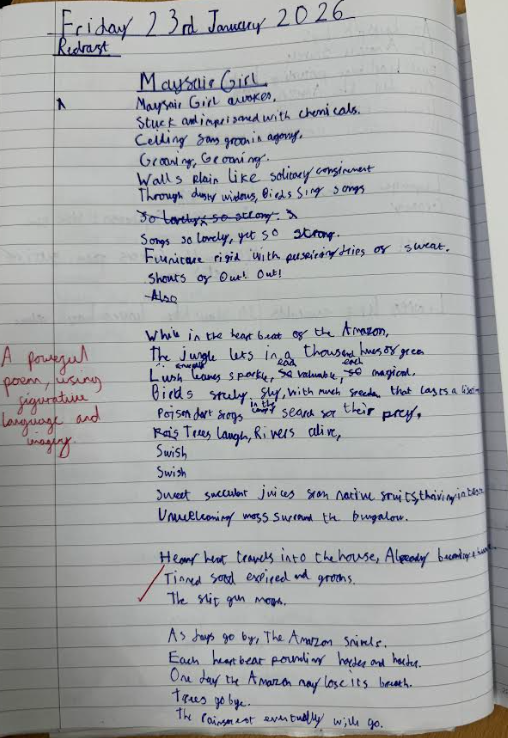 Friday 23rd January 2026
Redraft
Maysair Girl
Maysair Girl awakes,
Stuck and imprisoned with chemicals.
Ceiling fans groan in agony,
Groaning, Groaning.
Walls plain like solitary
Through dusty widows, Birds Sing songs
So lovely, so strong.
Songs so lovely, yet so strong.
Furniture rigid with of sweat.
Shouts of Out! Out!
Also
While in the heart beat of the Amazon,
The jungle lets in a thousand hues of green
Lush leaves sparkle, so valuable, each so magical.
Birds freely fly, with much freedom that lasts a
Poison dart frogs in the search for their prey,
Trees Laugh, Rivers alive,
Swish
Swish
Sweet succulent juices from native fruits, thriving in
Unwelcoming moss surround the bungalow.
A powerful
poem, using
figurative
language and
imagery.
Heavy heat travels into the house, Already becoming a
Tinned food expired and groans.
The gun
As days go by, The Amazon
Each heartbeat pounding harder and harder.
One day the Amazon may lose its breath.
Times go bye.
The rainforest eventually will go.